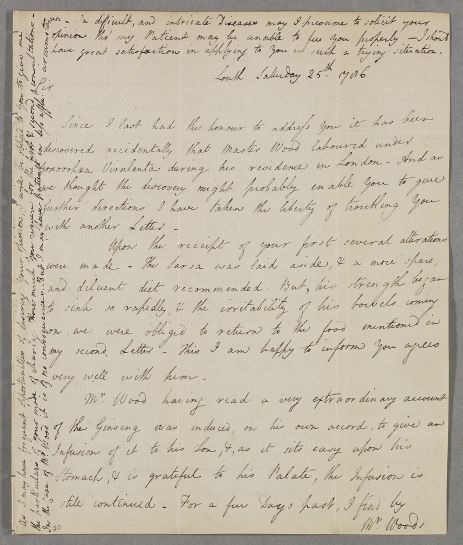 In difficult, and intricate Diseases may I presume to solicit your
opinion tho' my Patient may be unable to fee you properly — I should
have great satisfaction in applying to you in such a trying situation.
Louth Saturday 25th 1786
Sir
Since I last had the honour to address you it has been
discovered accidentally that Master Wood laboured under
Gonorrhœa Virulenta during his residence in London - And as
we thought the discovery might probably enable you to give
further directions I have taken the liberty of troubling you
with another Letter -
Upon the receipt of your first several alterations
were made - The Sarsa was laid aside, & a more spare,
and diluent diet recommended. But, his strength began
to sink so rapidly, & the irritability of his bowels coming
on we were obliged to return to the food mentioned in
my second Letter - This I am happy to inform you agrees
very well with him -
Mr. Wood having read a very extraordinary account
of the Ginseng was induced, on his own accord, to give an
Infusion of it to his Son, &, as it sits easy upon his
Stomach, & is grateful to his Palate, the Infusion is
still continued - For a few Days past, I find by
Mr Woods
As I may have frequent opportunities of desiring your opinion, I
the particulars of your mode of charge
In the case of Mr Wood it is of no consequence